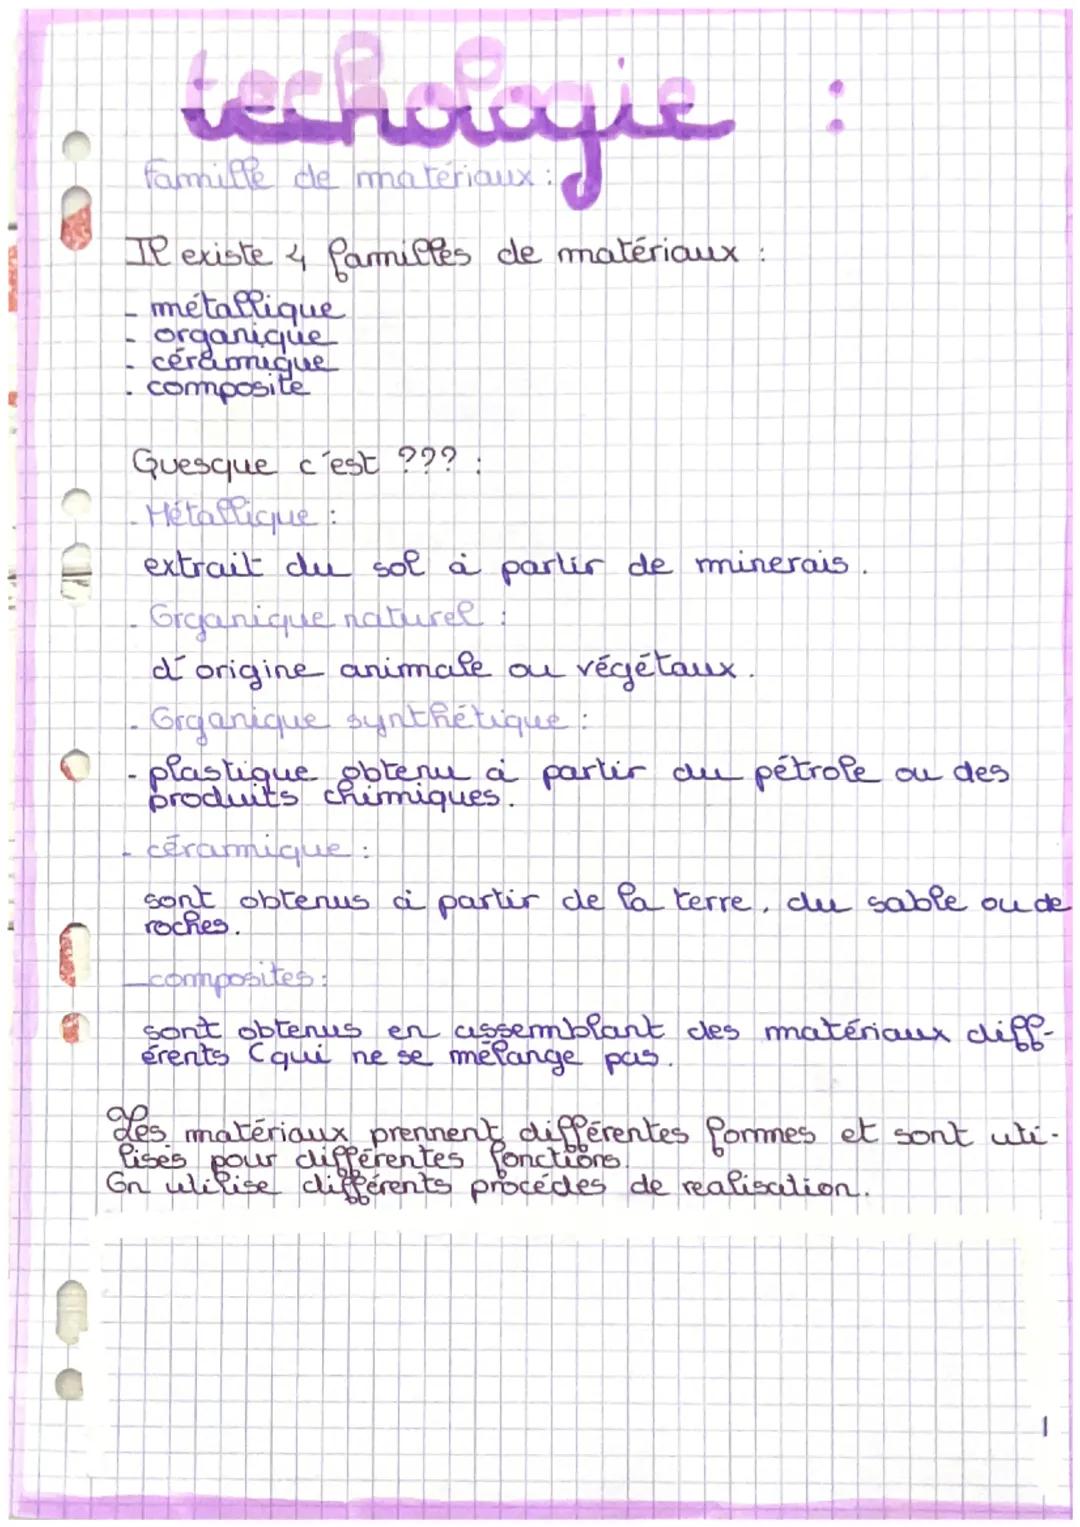 techologie :
famille de matériaux :
Il existe 4 familles de matériaux :
- métallique
- organique
- céramique
- composite
Quesque c'est ??? :
- Métallique :
extrait du sol à partir de minerais.
- Organique naturel :
d'origine animale ou végétaux.
- Organique synthétique :
- plastique obtenu à partir du pétrole ou des
produits chimiques.
- céramique :
sont obtenus à partir de la terre, du sable ou de
roches.
- composites :
sont obtenus en assemblant des matériaux diff-
érents (qui ne se mélange pas.
Les matériaux prennent différentes formes et sont uti-
lisés pour différentes fonctions.
On utilise différents procédés de realisation.
1